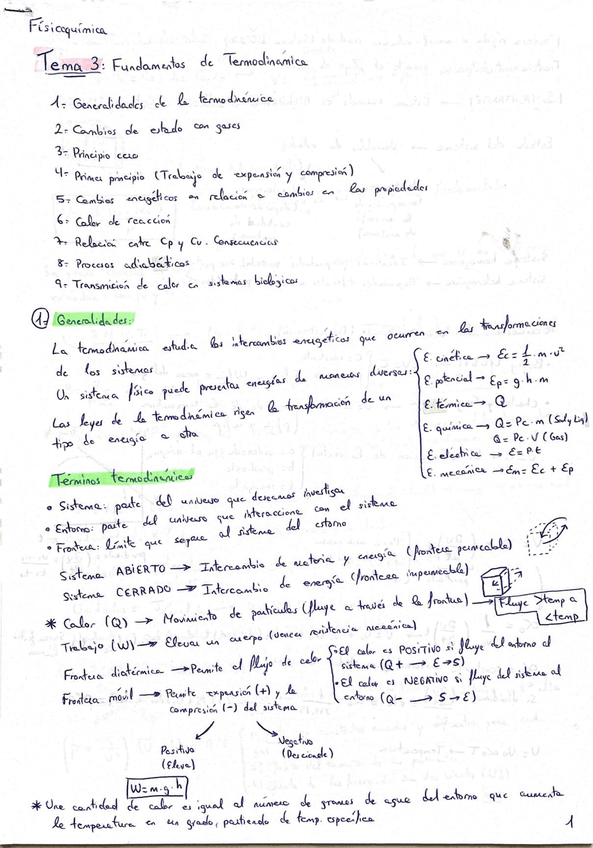 Fisicoquímica
Tema 3: Fundamentos de Termodinámica
1- Generalidades de la termodinámica
2- Cambios de estado con gases
3- Principio cero
4- Primer principio (Trabajo de expansión y compresión)
5- Cambios energéticos en relación a cambios en las propiedades
6- Calor de reacción
7- Relación entre Cp y Cv. Consecuencias
8- Procesos adiabáticos
9- Transmisión de calor en sistemas biológicos
1- Generalidades:
La termodinámica estudia los intercambios energéticos que ocurren en las transformaciones
de los sistemas
Un sistema físico puede presentar energías de maneras diversas:
Las leyes de la termodinámica rigen la transformación de un
tipo de energía a otra
E. cinética → Ec = 1/2 · m · v²
E. potencial → Ep = g · h · m
E. térmica → Q
E. química → Q = Pc · m (Sol y Liq)
Q = Pc · V (Gas)
E. eléctrica → E = P · t
E. mecánica → Em = Ec + Ep
Términos termodinámicos
• Sistema: parte del universo que deseamos investigar
• Entorno: parte del universo que interacciona con el sistema
• Frontera: límite que separa al sistema del entorno
Sistema ABIERTO → Intercambio de materia y energía (frontera permeable)
Sistema CERRADO → Intercambio de energía (frontera impermeable)
* Calor (Q) → Movimiento de partículas (fluye a través de la frontera) → Fluye >temp a
<temp
Trabajo (W) → Elevar un cuerpo (vencer resistencia mecánica)
Frontera diatérmica → Permite el flujo de calor
• El calor es POSITIVO si fluye del entorno al
sistema (Q+ → E→S)
• El calor es NEGATIVO si fluye del sistema al
entorno (Q- → S→E)
Frontera móvil → Permite expansión (+) y la
compresión (-) del sistema
Positivo
(Eleva)
Negativo
(Desciende)
W = m · g · h
* Una cantidad de calor es igual al número de gramos de agua del entorno que aumenta
la temperatura en un grado, partiendo de temp. específica
1